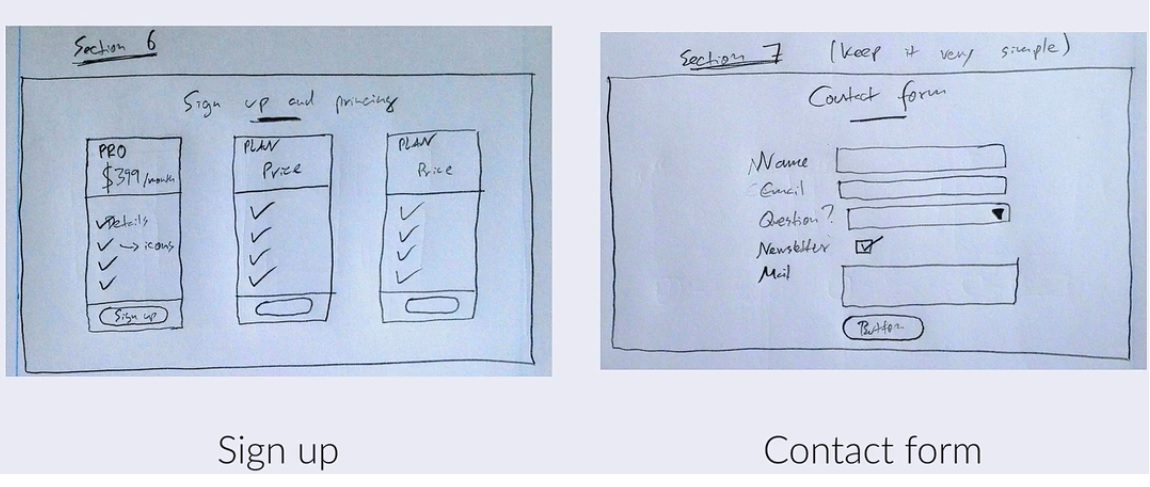 Section 6
Sign up and princing
PRO
$399/month
Details
→ icons
Sign up
PLAN
Price
PLAN
Price
Section 7 (keep it very simple)
Contact form
Name
Email
Question?
Newsletter
Mail
Button
Sign up
Contact form